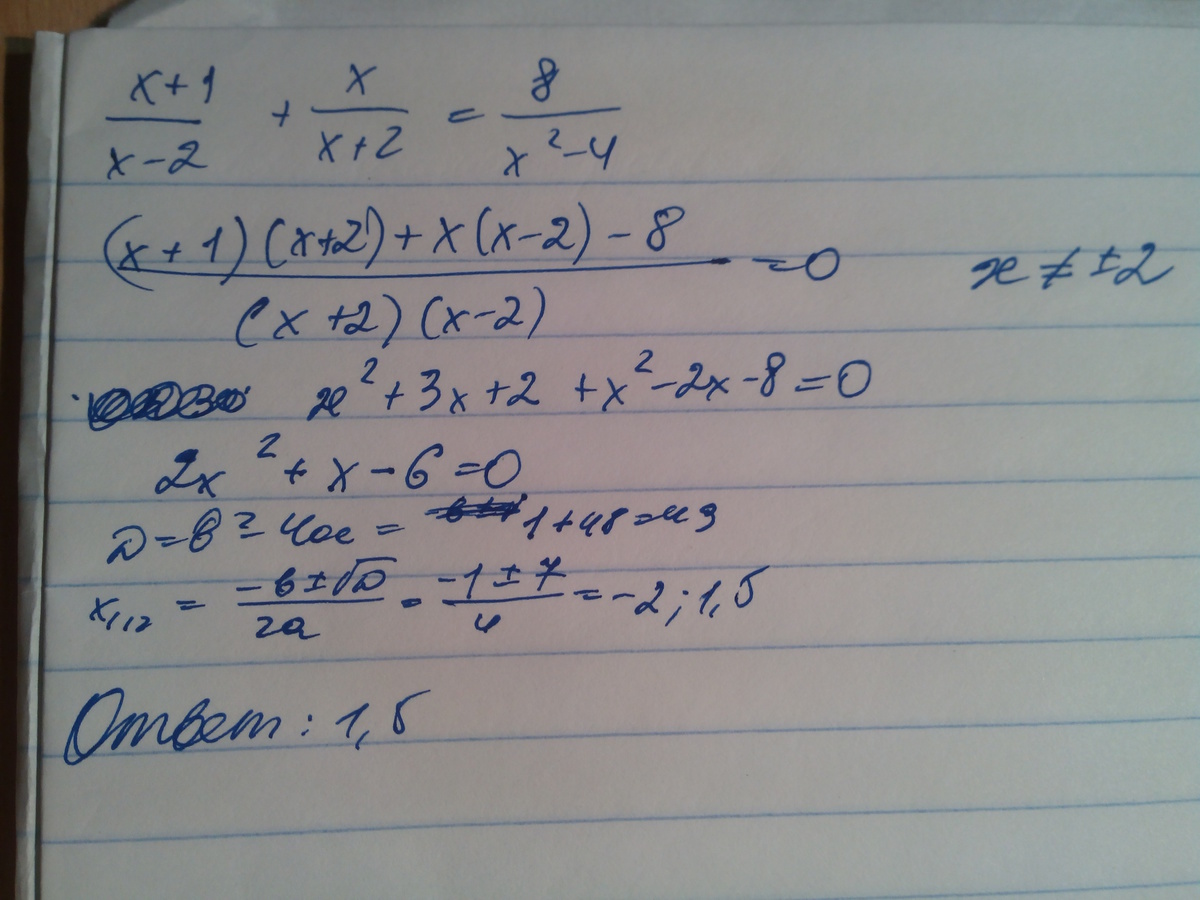 (x+1)/(x-2) + x/(x+2) = 8/(x²-4)
((x+1)(x+2)+x(x-2)-8)/((x+2)(x-2)) =0 x≠±2
x²+3x+2+x²-2x-8=0
2x²+x-6=0
D=b²-4ac= 1+48=49
x₁,₂ = (-b±√D)/2a = (-1±7)/4 =-2;1,5
Ответ: 1,5